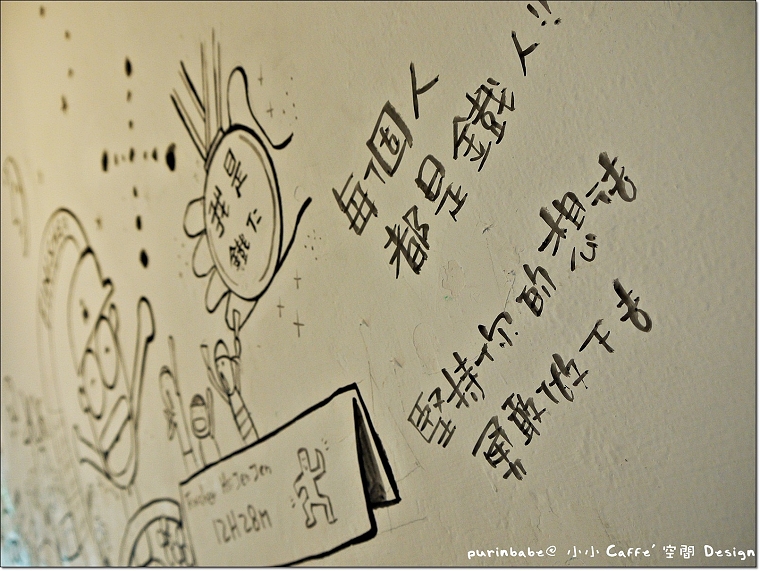 每個人
都是鐵人!!
堅持你的想法
勇敢做下去
我是
鐵仁
12H28M
purinbabe@ 小小 Caffe' 空間 Design